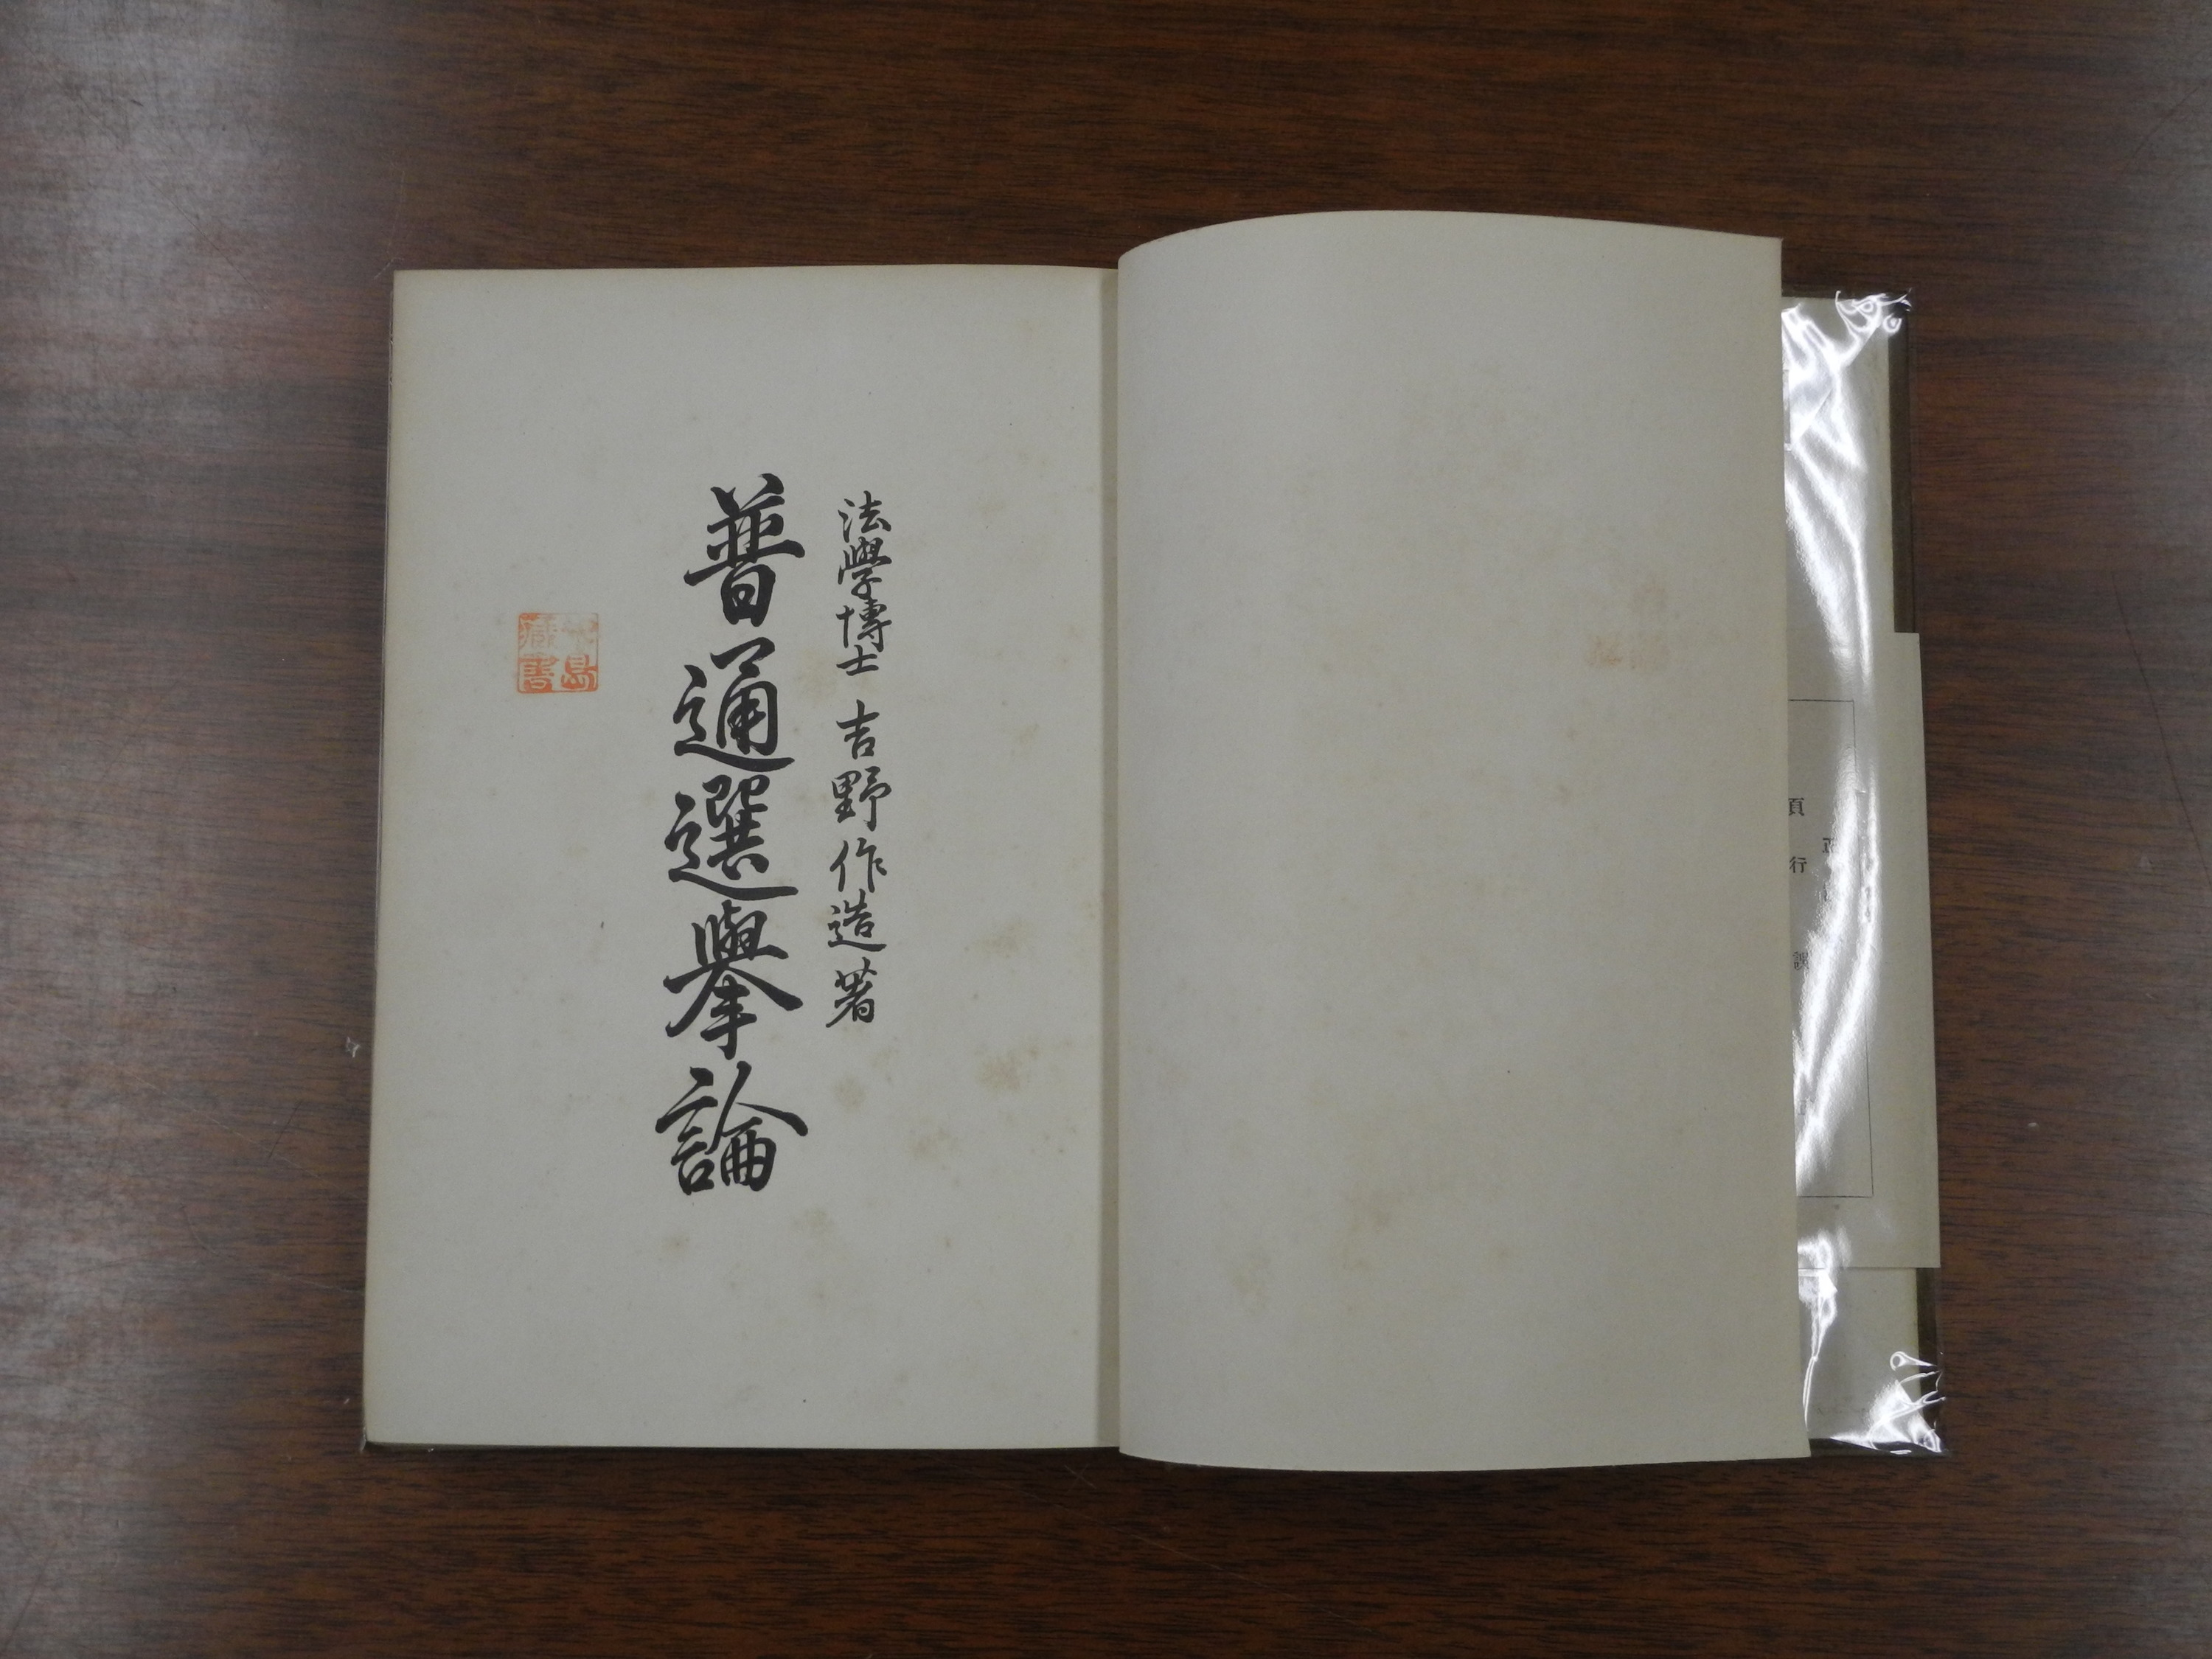 法學博士 吉野作造著
普通選擧論
島
藏書
頁
行
誤
正